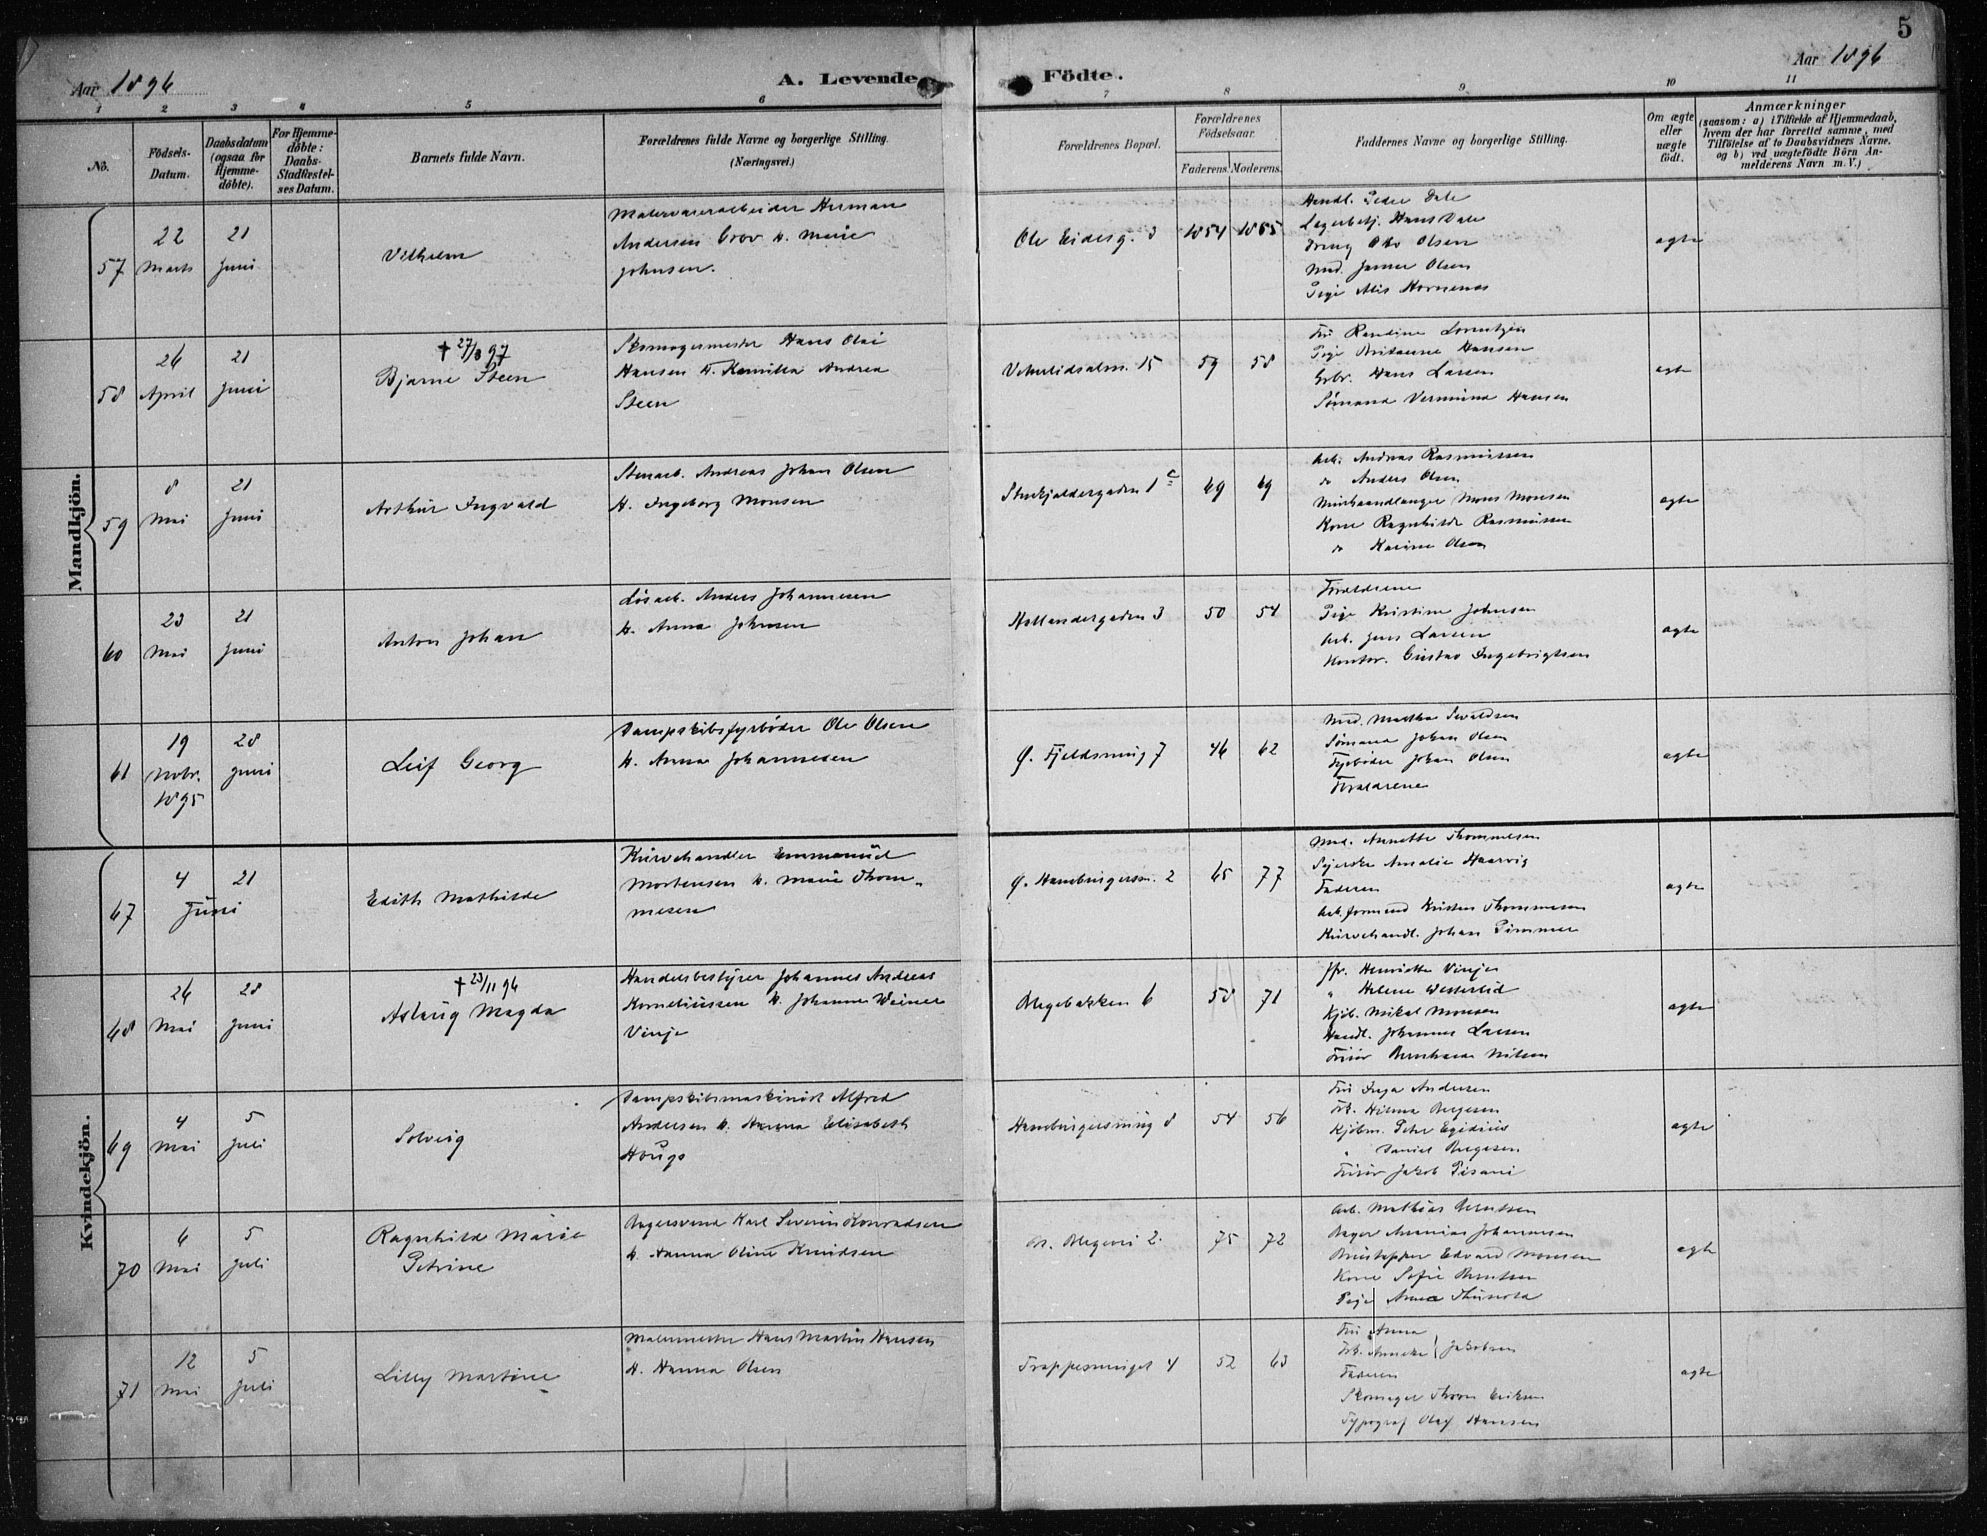 5
Aar 1896
A. Levende Födte.
Aar 1896
1 2 3 4 5 6 7 8 9 10 11
No.
Födsels-Datum.
Daabsdatum (ogsaa for Hjemme-döbte).
For Hjemme-döbte: Daabs-Stadfæstel-ses Datum.
Barnets fulde Navn.
Forældrenes fulde Navne og borgerlige Stilling.
(Næringsvei.)
Forældrenes Bopæl.
Forældrenes Födselsaar.
Faderens. Moderens.
Faddernes Navne og borgerlige Stilling.
Om ægte eller uægte födt.
Anmærkninger
(saasom: a) i Tilfælde af Hjemmedaab,
hvem der har forrettet samme, med
Tilföielse af to Daabsvidners Navne,
og b) ved uægtefödte Börn An-
melderens Navn m. V.)
Mandkjön.
57
22 Marts
21 Juni
Vilhelm
Herman
Andersen Grov h. Marie
Johnsen.
Ole Eidesg. 3
1854 1865
Handl. Peder Dale
Lagerbetj. Hans Dale
Dreng Otto Olsen
Mad. Olsen
Pige
ægte
58
26 April
21 Juni
† 27/8 97
Bjarne Steen
Skomagermester Hans Olai
Hansen h. Kamilla Andrea
Steen
15
59 58
Fru Randine Lorentzen
Pige Hansen
Hans Larsen
Sømand Hansen
ægte
59
8 Mai
21 Juni
Arthur Ingvald
Stenarb. Andreas Johan Olsen
h. Ingeborg Monsen
Stenkjeldergaden 1 c
69 69
Arb. Andreas Rasmussen
do Anders Olsen
Murhaandlanger Mons Monsen
Kone Ragnhilde Rasmussen
do Karine Olsen
ægte
60
23 Mai
21 Juni
Anton Johan
Løsarb. Anders Johannesen
h. Anna Johnsen
Hollendergaden 3
50 54
Forældrene
Pige Kristine Johnsen
Arb. Jens Larsen
Kontor. Gustav Ingebrigtsen
ægte
61
19 Novbr. 1895
28 Juni
Leif Georg
Dampskibsfyrbøder Ole Olsen
h. Anna Johannesen
Ø. Fjeldsmug 7
46 62
Mad. Martha Sivaldsen
Sømand Johan Olsen
Fyrbøder Johan Olsen
Forældrene
ægte
Kvindekjön.
67
4 21
Juni
Edith Mathilde
Kurvehandler Emmanuel
Mortensen h. Marie Thom-
mesen
Ø. Hamburgersm. 2
65 77
Mad. Annette Thommesen
Syerske Amalie Haarvig
Faderen
Arb.formand Kristen Thommesen
Kurvehandl. Johan Pimmer
ægte
68
26 Mai
28 Juni
† 23/11 96
Aslaug Magda
Handelsbestyrer Johannes Andreas
Korneliussen h. Johanne Weiner
Vinje
Blegebakken 6
58 71
Jfr. Henriette Vinje
" Helene Westerlid
Kjøb. Mikal Monsen
Handl. Johannes Larsen
Frisør Nilsen
ægte
69
4 Mai
5 Juli
Solveig
Dampskibsmaskinist Alfred
Andersen h. Hanna Elisabeth
Houge
Hamburgersmug 8
54 56
Fru Inga Andersen
Frk. Hilma
Kjøbm. Peter Egidius
" Daniel
Frisør Jakob Pisani
ægte
70
6 Mai
5 Juli
Ragnhilde Marie
Petrine
Bagersvend Karl Severin Konradsen
h. Hanna Oline Knudsen
N. Blegevei 2.
75 72
Arb. Mathias Berntsen
Bager Johannesen
Edvard Monsen
Kone Sofie Berntsen
Pige Anna
ægte
71
12 Mai
5 Juli
Lilly Martine
Malermester Hans Martin Hansen
h. Hanna Olsen
Trappesmuget 4
52 63
Fru Anna
Frk. Anneke } Jakobsen
Faderen
Skomager Thom Eriksen
Typograf Olaf Hansen
ægte